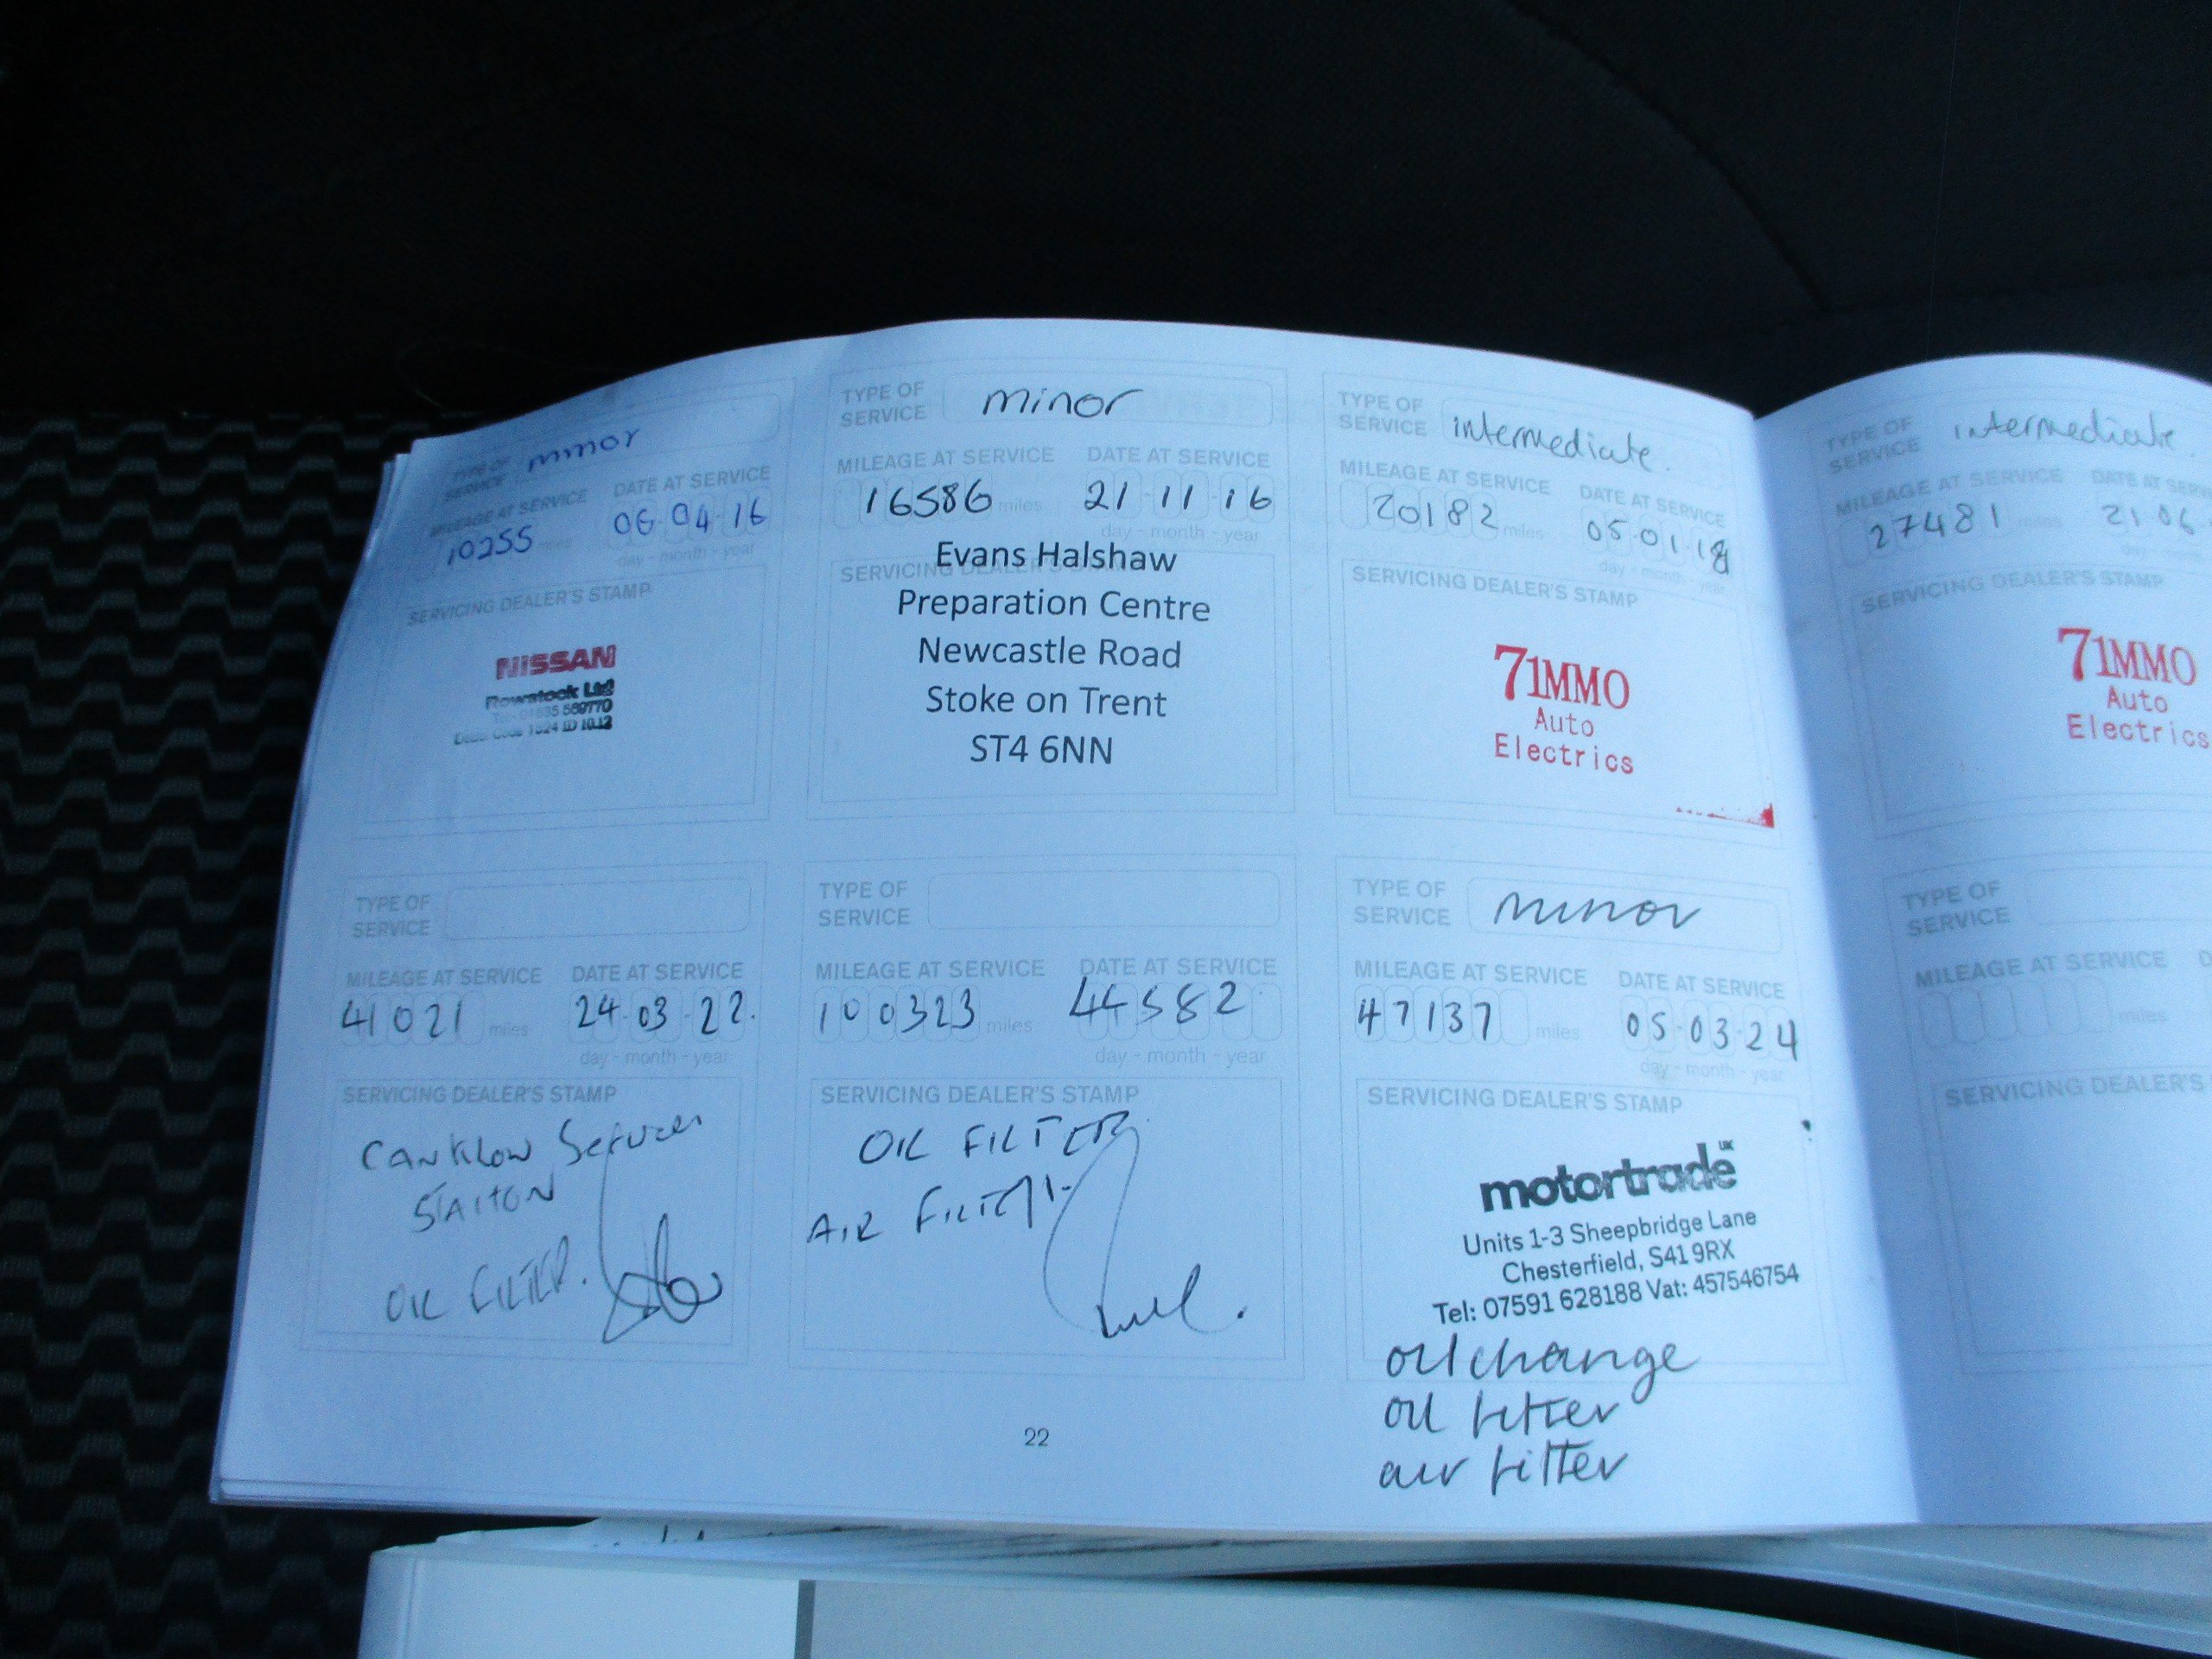 TYPE OF
SERVICE minor
MILEAGE AT SERVICE DATE AT SERVICE
10255 miles 06-04-16
day - month - year
SERVICING DEALER'S STAMP
NISSAN
Rowstock Ltd
TYPE OF
SERVICE minor
MILEAGE AT SERVICE DATE AT SERVICE
16586 miles 21-11-16
day - month - year
SERVICING DEALER'S STAMP
Evans Halshaw
Preparation Centre
Newcastle Road
Stoke on Trent
ST4 6NN
TYPE OF
SERVICE intermediate.
MILEAGE AT SERVICE DATE AT SERVICE
20182 miles 05-01-18
day - month - year
SERVICING DEALER'S STAMP
71MMO
Auto
Electrics
TYPE OF
SERVICE intermediate.
MILEAGE AT SERVICE DATE AT
27481 miles 21-06
SERVICING DEALER'S STAMP
71MMO
Auto
Electrics
TYPE OF
SERVICE
MILEAGE AT SERVICE DATE AT SERVICE
41021 miles 24-03-22.
day - month - year
SERVICING DEALER'S STAMP
Canklow
STAITON
OIL FILTER.
TYPE OF
SERVICE
MILEAGE AT SERVICE DATE AT SERVICE
100323 miles 44582
day - month - year
SERVICING DEALER'S STAMP
OIL FILTER
AIR FILTER
TYPE OF
SERVICE minor
MILEAGE AT SERVICE DATE AT SERVICE
47137 miles 05-03-24
day - month - year
SERVICING DEALER'S STAMP
motortrade UK
Units 1-3 Sheepbridge Lane
Chesterfield, S41 9RX
Tel: 07591 628188 Vat: 457546754
oil change
oil filter
air filter
TYPE OF
SERVICE
MILEAGE AT SERVICE
miles
SERVICING DEALER'S
22